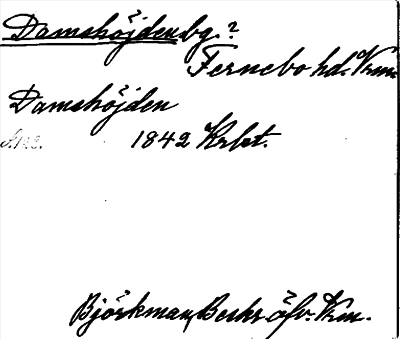 Damshöjden bg.?
Fernebo hd. Vrm.
Damshöjden
1842 Krbet.
Björkman, Beskr. öfv. Vrm.